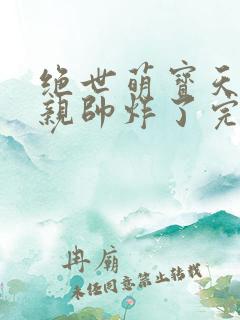 绝世萌寶天
親帥炸了完
冉廟
未经同意禁止转载